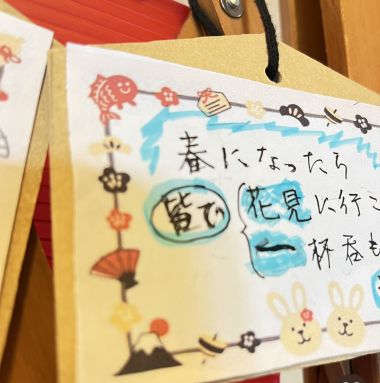 春になったら
皆で
花見に行こ
一杯呑も